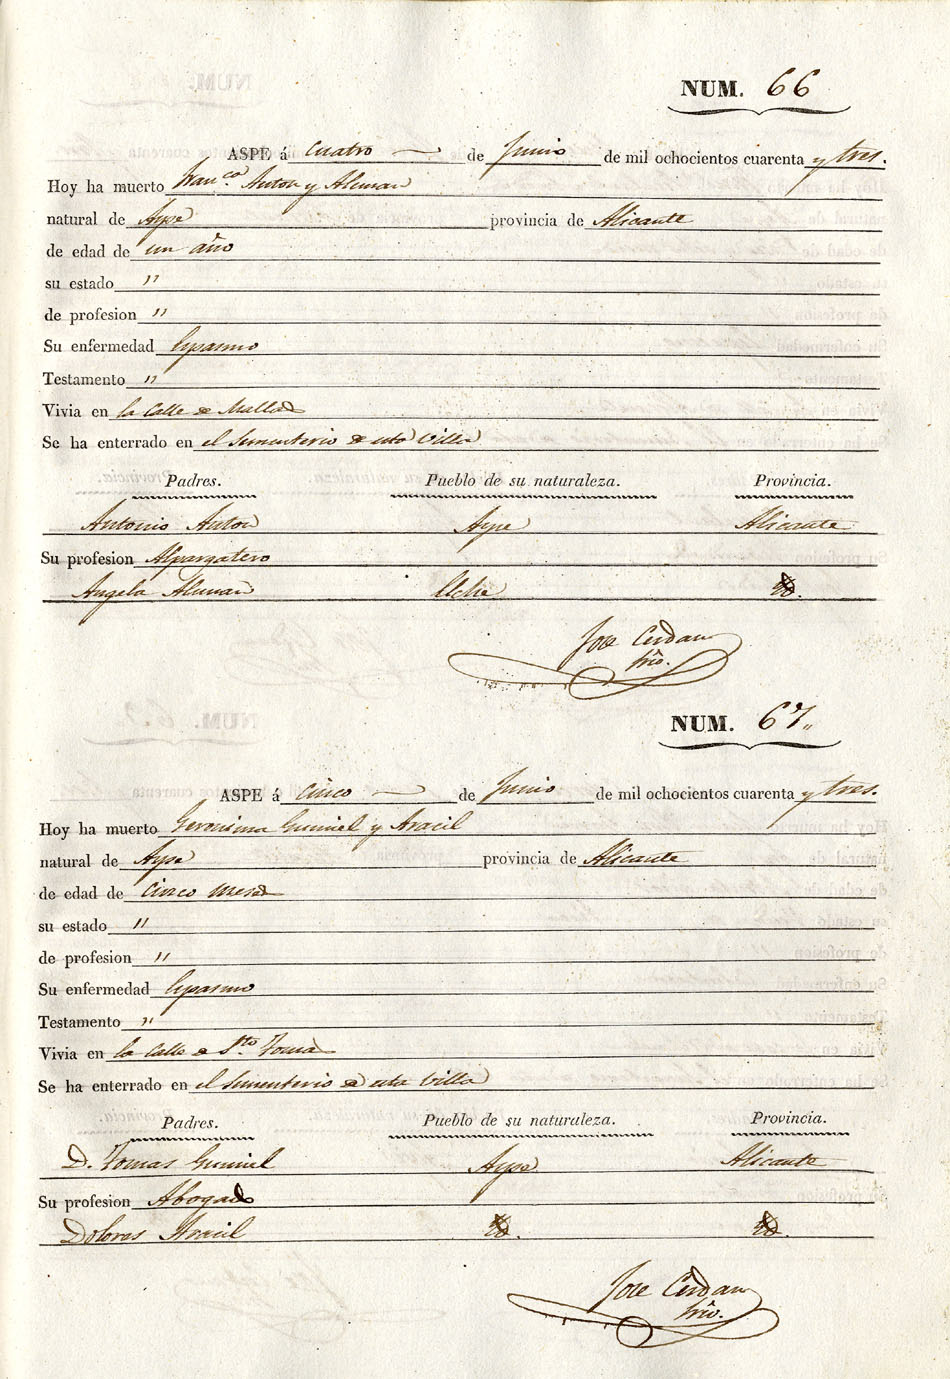 NUM. 66
ASPE á cuatro de Junio de mil ochocientos cuarenta y tres.
Hoy ha muerto Fran.co Anton y Aleman
natural de Aspe provincia de Alicante
de edad de un año
su estado "
de profesion "
Su enfermedad Espasmo
Testamento "
Vivia en la Calle de
Se ha enterrado en el Sementerio de esta Villa
Padres. Pueblo de su naturaleza. Provincia.
Antonio Anton Aspe Alicante
Su profesion Alpargatero
Angela Aleman Elche Yd.
Jose Cerdan
Srio.
NUM. 67"
ASPE á cinco de Junio de mil ochocientos cuarenta y tres.
Hoy ha muerto Geronima Gumiel y Aracil
natural de Aspe provincia de Alicante
de edad de cinco meses
su estado "
de profesion "
Su enfermedad Espasmo
Testamento "
Vivia en la Calle de Sto. Tomas
Se ha enterrado en el Sementerio de esta Villa
Padres. Pueblo de su naturaleza. Provincia.
D. Tomas Gumiel Aspe Alicante
Su profesion Abogado
Dolores Aracil Yd. Yd.
Jose Cerdan
Srio.